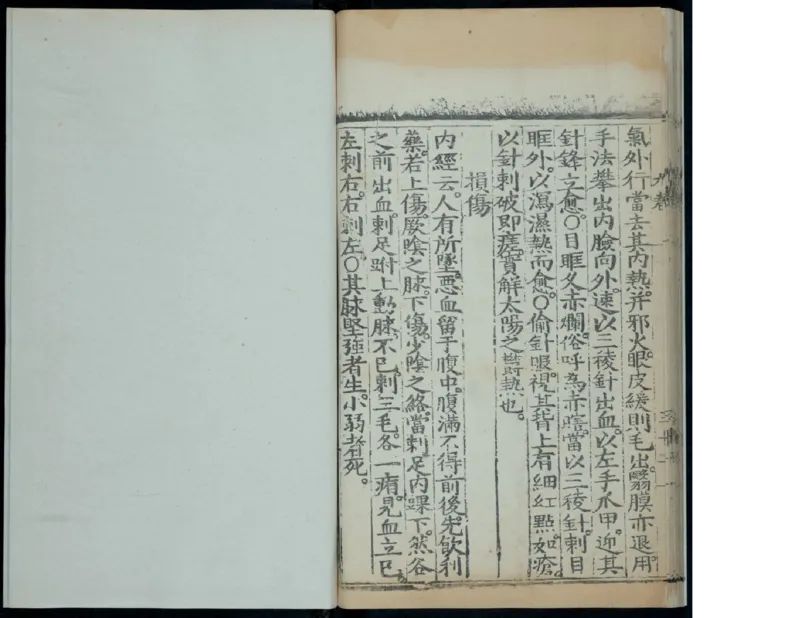 氣外行當去其內熱并邪火眼皮緩則毛出翳膜亦退用
手法攀出內臉向外速以三稜針出血以左手爪甲迎其
針鋒立愈○目眶久赤爛俗呼為赤瞎當以三稜針刺目
眶外以瀉濕熱而愈○偷針眼視其背上有細紅點如瘡
以針刺破即瘥實解太陽之欝熱也
損傷
內經云人有所墜惡血留于腹中腹滿不得前後先飲利
藥若上傷厥陰之脉下傷少陰之絡當刺足內踝下然谷
之前出血刺足跗上動脉不已刺三毛各一痏見血立已
左刺右右刺左○其脉堅強者生小弱者死